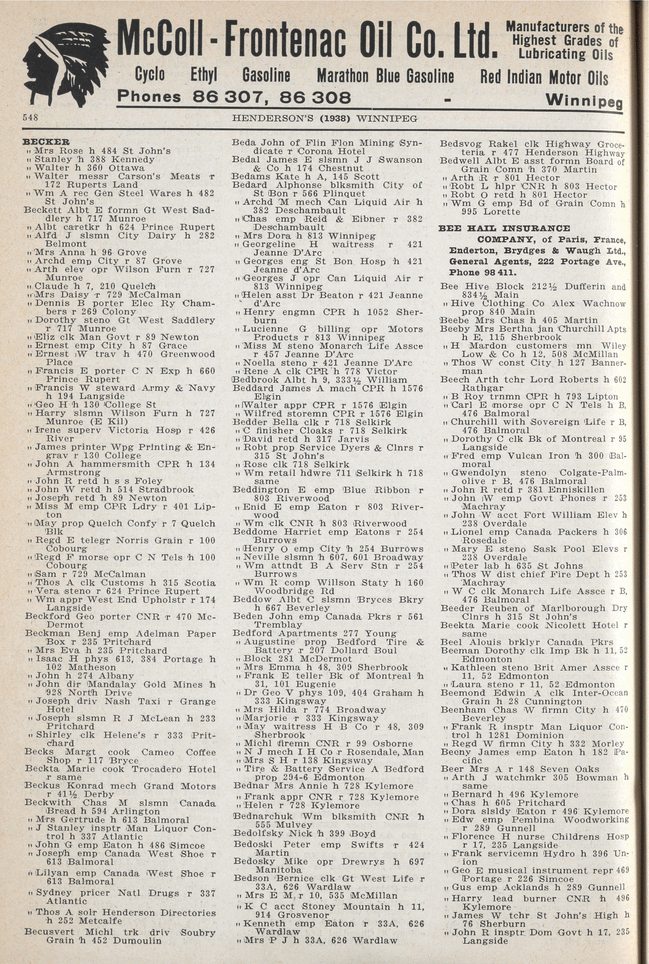 McColl-Frontenac Oil Co. Ltd.
Manufacturers of the
Highest Grades of
Lubricating Oils
Cyclo Ethyl Gasoline Marathon Blue Gasoline Red Indian Motor Oils
Phones 86 307, 86 308 - Winnipeg
548 HENDERSON'S (1938) WINNIPEG
BECKER
„ Mrs Rose h 484 St John's
„ Stanley h 388 Kennedy
„ Walter h 360 Ottawa
„ Walter messr Carson's Meats r
172 Ruperts Land
„ Wm A rec Gen Steel Wares h 482
St John's
Beckett Albt E formn Gt West Sad-
dlery h 717 Munroe
„ Albt caretkr h 624 Prince Rupert
„ Alfd J slsmn City Dairy h 282
Belmont
„ Mrs Anna h 96 Grove
„ Archd emp City r 87 Grove
„ Arth elev opr Wilson Furn r 727
Munroe
„ Claude h 7, 210 Quelch
„ Mrs Daisy r 729 McCalman
„ Dennis B porter Elec Ry Cham-
bers r 269 Colony
„ Dorothy steno Gt West Saddlery
r 717 Munroe
„ Eliz clk Man Govt r 89 Newton
„ Ernest emp City h 87 Grace
„ Ernest W trav h 470 Greenwood
Place
„ Francis E porter C N Exp h 660
Prince Rupert
„ Francis W steward Army & Navy
h 194 Langside
„ Geo H h 130 College St
„ Harry slsmn Wilson Furn h 727
Munroe (E Kil)
„ Irene superv Victoria Hosp r 426
River
„ James printer Wpg Printing & En-
grav r 130 College
„ John A hammersmith CPR h 134
Armstrong
„ John R retd h s s Foley
„ John W retd h 514 Stradbrook
„ Joseph retd h 89 Newton
„ Miss M emp CPR Ldry r 401 Lip-
ton
„ May prop Quelch Confy r 7 Quelch
Blk
„ Regd E telegr Norris Grain r 100
Cobourg
„ Regd F morse opr C N Tels h 100
Cobourg
„ Sam r 729 McCalman
„ Thos A clk Customs h 315 Scotia
„ Vera steno r 624 Prince Rupert
„ Wm appr West End Upholst r 174
Langside
Beckford Geo porter CNR r 470 Mc-
Dermot
Beckman Benj emp Adelman Paper
Box r 235 Pritchard
„ Mrs Eva h 235 Pritchard
„ Isaac H phys 613, 384 Portage h
102 Matheson
„ John h 274 Albany
„ John dir Mandalay Gold Mines h
928 North Drive
„ Joseph driv Nash Taxi r Grange
Hotel
„ Joseph slsmn R J McLean h 233
Pritchard
„ Shirley clk Helene's r 233 Prit-
chard
Becks Margt cook Cameo Coffee
Shop r 117 Bryce
Beckta Marie cook Trocadero Hotel
r same
Beckus Konrad mech Grand Motors
r 41½ Derby
Beckwith Chas M slsmn Canada
Bread h 594 Arlington
„ Mrs Gertrude h 613 Balmoral
„ J Stanley insptr Man Liquor Con-
trol h 337 Atlantic
„ John G emp Eaton h 486 Simcoe
„ Joseph emp Canada West Shoe r
613 Balmoral
„ Lilyan emp Canada West Shoe r
613 Balmoral
„ Sydney pricer Natl Drugs r 337
Atlantic
„ Thos A solr Henderson Directories
h 252 Metcalfe
Becusvert Michl trk driv Soubry
Grain h 452 Dumoulin
Beda John of Flin Flon Mining Syn-
dicate r Corona Hotel
Bedal James E slsmn J J Swanson
& Co h 174 Chestnut
Bedams Kate h A, 145 Scott
Bedard Alphonse blksmith City of
St Bon r 566 Plinquet
„ Archd M mech Can Liquid Air h
382 Deschambault
„ Chas emp Reid & Eibner r 382
Deschambault
„ Mrs Dora h 813 Winnipeg
„ Georgeline H waitress r 421
Jeanne D'Arc
„ Georges eng St Bon Hosp h 421
Jeanne d'Arc
„ Georges J opr Can Liquid Air r
813 Winnipeg
„ Helen asst Dr Beaton r 421 Jeanne
d'Arc
„ Henry engmn CPR h 1052 Sher-
burn
„ Lucienne G billing opr Motors
Products r 813 Winnipeg
„ Miss M steno Monarch Life Assce
r 457 Jeanne D'Arc
„ Noella steno r 421 Jeanne D'Arc
„ Rene A clk CPR h 778 Victor
Bedbrook Albt h 9, 333½ William
Beddard James A mach CPR h 1576
Elgin
„ Walter appr CPR r 1576 Elgin
„ Wilfred storemn CPR r 1576 Elgin
Bedder Bella clk r 718 Selkirk
„ C finisher Cloaks r 718 Selkirk
„ David retd h 317 Jarvis
„ Robt prop Service Dyers & Clnrs r
315 St John's
„ Rose clk 718 Selkirk
„ Wm retail hdwre 711 Selkirk h 718
same
Beddington E emp Blue Ribbon r
803 Riverwood
„ Enid E emp Eaton r 803 River-
wood
„ Wm clk CNR h 803 Riverwood
Beddome Harriet emp Eatons r 254
Burrows
„ Henry O emp City h 254 Burrows
„ Neville slsmn h 607, 601 Broadway
„ Wm attndt B A Serv Stn r 254
Burrows
„ Wm R comp Willson Staty h 160
Woodbridge Rd
Beddow Albt C slsmn Bryces Bkry
h 667 Beverley
Beden John emp Canada Pkrs r 561
Tremblay
Bedford Apartments 277 Young
„ Augustine prop Bedford Tire &
Battery r 207 Dollard Boul
„ Block 281 McDermot
„ Mrs Emma h 48, 309 Sherbrook
„ Frank E teller Bk of Montreal h
31, 101 Eugenie
„ Dr Geo V phys 109, 404 Graham h
333 Kingsway
„ Mrs Hilda r 774 Broadway
„ Marjorie r 333 Kingsway
„ May waitress H B Co r 48, 309
Sherbrook
„ Michl firemn CNR r 99 Osborne
„ N J mech I H Co r Rosendale, Man
„ Mrs S H r 138 Kingsway
„ Tire & Battery Service A Bedford
prop 294-6 Edmonton
Bednar Mrs Annie h 728 Kylemore
„ Frank appr CNR r 728 Kylemore
„ Helen r 728 Kylemore
Bednarchuk Wm blksmith CNR h
555 Mulvey
Bedolfsky Nick h 399 Boyd
Bedoski Peter emp Swifts r 424
Martin
Bedosky Mike opr Drewrys h 697
Manitoba
Bedson Bernice clk Gt West Life r
33A, 626 Wardlaw
„ Mrs E M, r 10, 535 McMillan
„ K C acct Stoney Mountain h 11,
914 Grosvenor
„ Kenneth emp Eaton r 33A, 626
Wardlaw
„ Mrs P J h 33A, 626 Wardlaw
Bedsvog Rakel clk Highway Groce-
teria r 477 Henderson Highway
Bedwell Albt E asst formn Board of
Grain Comn h 370 Martin
„ Arth R r 801 Hector
„ Robt L hlpr CNR h 803 Hector
„ Robt O retd h 801 Hector
„ Wm G emp Bd of Grain Comn h
995 Lorette
BEE HAIL INSURANCE
COMPANY, of Paris, France,
Enderton, Brydges & Waugh Ltd.,
General Agents, 222 Portage Ave.,
Phone 98 411.
Bee Hive Block 212½ Dufferin and
834½ Main
„ Hive Clothing Co Alex Wachnow
prop 840 Main
Beebe Mrs Chas h 405 Martin
Beeby Mrs Bertha jan Churchill Apts
h E, 115 Sherbrook
„ H Mardon customers mn Wiley
Low & Co h 12, 508 McMillan
„ Thos W const City h 127 Banner-
man
Beech Arth tchr Lord Roberts h 602
Rathgar
„ B Roy trnmn CPR h 793 Lipton
„ Carl E morse opr C N Tels h B,
476 Balmoral
„ Churchill with Sovereign Life r B,
476 Balmoral
„ Dorothy C clk Bk of Montreal r 95
Langside
„ Fred emp Vulcan Iron h 300 Bal-
moral
„ Gwendolyn steno Colgate-Palm-
olive r B, 476 Balmoral
„ John R retd r 381 Enniskillen
„ John W emp Govt Phones r 253
Machray
„ John W acct Fort William Elev h
238 Overdale
„ Lionel emp Canada Packers h 306
Rosedale
„ Mary E steno Sask Pool Elevs r
238 Overdale
„ Peter lab h 635 St Johns
„ Thos W dist chief Fire Dept h 253
Machray
„ W C clk Monarch Life Assce r B,
476 Balmoral
Beeder Reuben of Marlborough Dry
Clnrs h 315 St John's
Beekta Marie cook Nicolett Hotel r
same
Beel Alouis brklyr Canada Pkrs
Beeman Dorothy clk Imp Bk h 11, 52
Edmonton
„ Kathleen steno Brit Amer Assce r
11, 52 Edmonton
„ Laura steno r 11, 52 Edmonton
Beemond Edwin A clk Inter-Ocean
Grain h 28 Cunnington
Beenham Chas W firmn City h 470
Beverley
„ Frank R insptr Man Liquor Con-
trol h 1281 Dominion
„ Regd W firmn City h 332 Morley
Beeny James emp Eaton h 182 Pa-
cific
Beer Mrs A r 148 Seven Oaks
„ Arth J watchmkr 305 Bowman h
same
„ Bernard h 496 Kylemore
„ Chas h 605 Pritchard
„ Dora slsldy Eaton r 496 Kylemore
„ Edw emp Pembina Woodworking
r 289 Gunnell
„ Florence H nurse Childrens Hosp
r 17, 235 Langside
„ Frank servicemn Hydro h 396 Un-
ion
„ Geo E musical instrument repr 469
Portage r 226 Simcoe
„ Gus emp Acklands h 289 Gunnell
„ Harry lead burner CNR h 496
Kylemore
„ James W tchr St John's High h
76 Sherburn
„ John R insptr Dom Govt h 17, 235
Langside